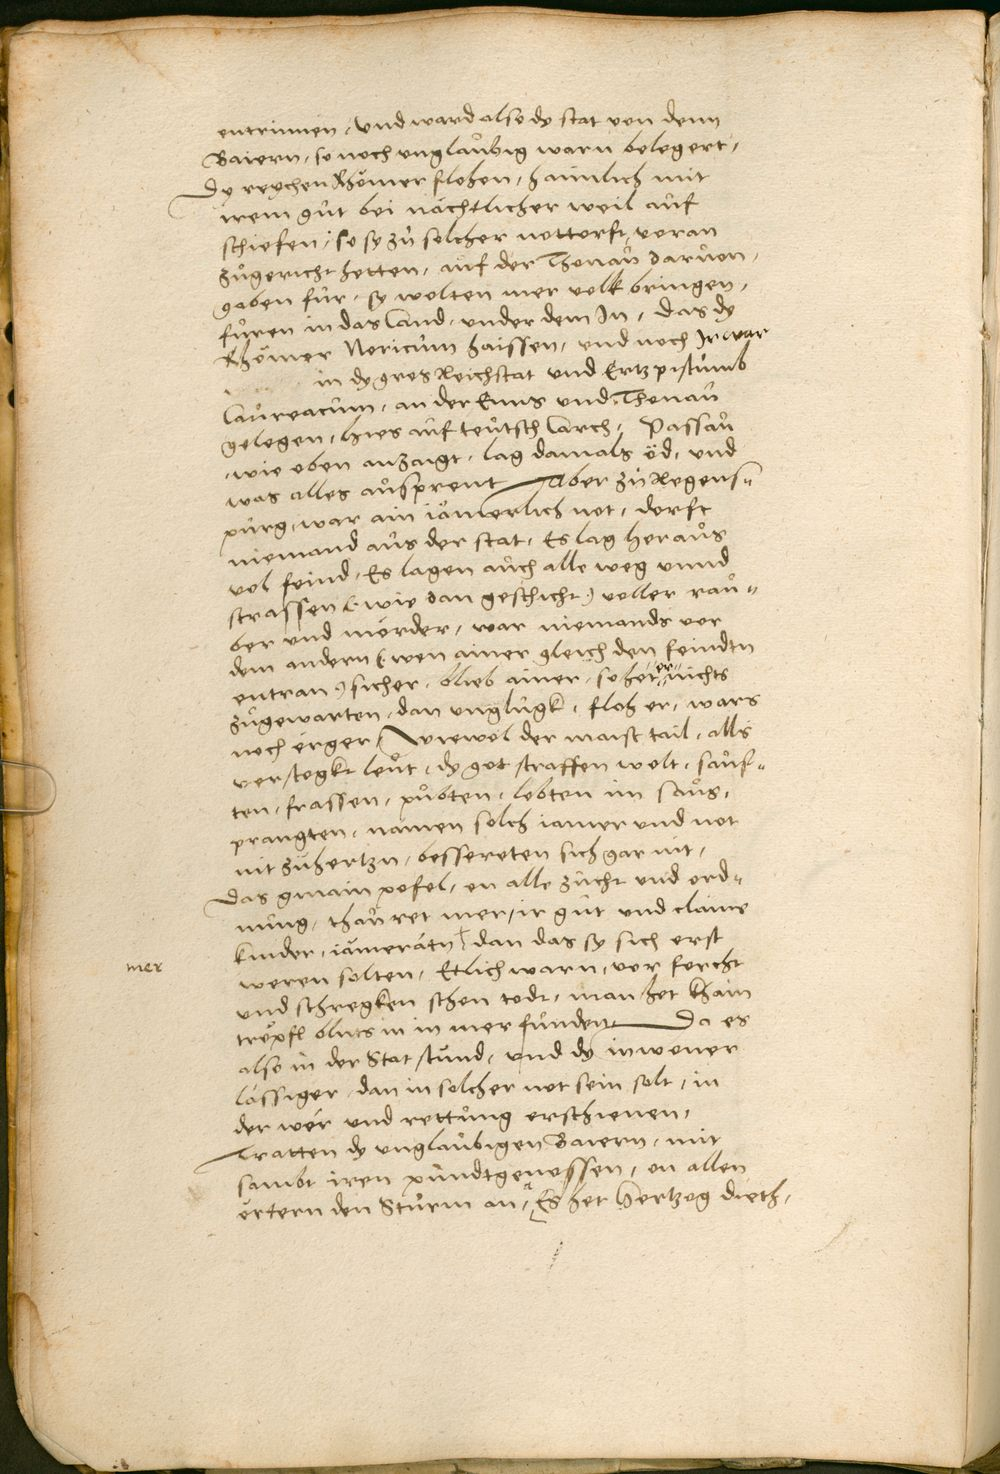 entrinnen, Und ward also dy stat von denn
Baiern, so noch unglaůbig warn belegert,
Dy reychen Rhömer flohen, haimlich mit
irem gůt bei nächtlicher weil aůf
schiefen, so sy zů solcher nottorft voran
zůgericht hetten, aůf der Thonaů daruon,
gaben für, sy wolten mer volk bringen,
fůren in das Land, under dem In, das dy
Rhömer Noricům haissen, und noch Ir war
in dy gros Reichstat und Ertzpistůmb
Laůreacům, an der Enns und Thonaů
gelegen, hies aůf teůtsch Larch, Passaů
wie oben anzaigt, lag damals öd, und
was alles aůsprent Aber zů Regens„
půrg, war ain iämerlich not, dorft
niemand aůs der stat, Es lag heraůs
vol feind, Es lagen aůch alle weg vnnd
strassen (wie dan geschicht) voller raů„
ber und mörder, war niemands vor
dem andern (wen ainer gleich den feindtn
entran) sicher, blieb ainer, so het er nichts
zůgewarten, dan unglůgk, floh er, wars
noch erger, Wiewol der maist tail, alls
verstogkt leůt, dy got straffen wolt, saůf„
ten, frassen, půbten, lebten im saůs,
prangten, namen solch iamer und not
nit zůhertzn, bessereten sich gar nit,
Das gmain pofel, on alle zůcht und ord„
nůng, thaůret mer, ir gůt und claine
kinder, iämerätn, dan das sy sich erst
mer
weren solten, Etlich warn, vor forcht
und schregken schon todt, man het khain
tröpfl blůts in in mer fůnden, Do es
also in der Stat stůnd, und dy inwoner
lässiger, dan in solcher not sein solt, in
der wör und rettůng erschienen,
Tratten dy unglaůbigen Baiern, mit
sambt iren půndtgenossen, on allen
örtern den Stůrm an, Es het Hertzog dieth,